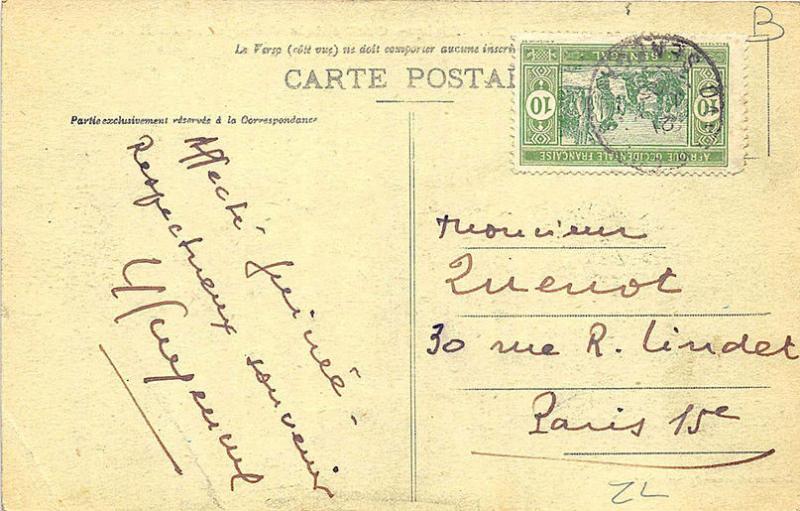 B
Le Verso (côté vue) ne doit comporter aucune inscri
CARTE POSTAL
Partie exclusivement réservée à la Correspondance
10
10
SÉNÉGAL
AFRIQUE OCCIDENTALE FRANÇAISE
Affecté Guinée -
Respectueux souvenir
Monsieur
Quenot
30 rue R. Lindet
Paris 15e